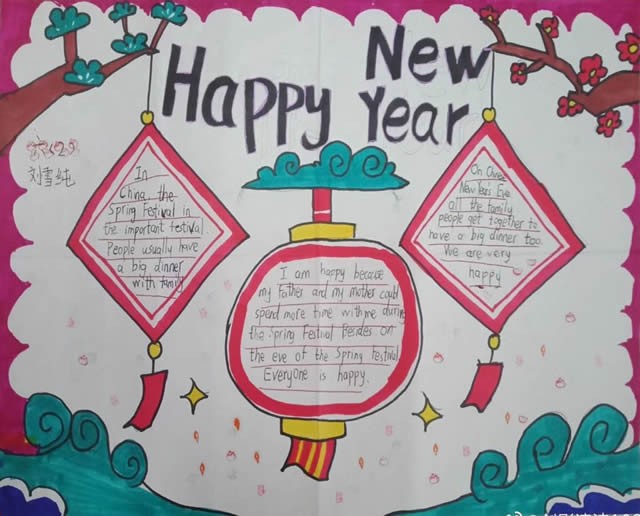 Happy New Year
刘雪纯
In
China, the
Spring Festival in
the important festival.
People usually have
a big dinner
with family
I am happy because
my father and my mother could
spend more time with me during
the Spring Festival Besides on
the eve of the Spring Festival
Everyone is happy.
On
New Year's Eve
all the family
people get together to
have a big dinner too.
We are very
happy